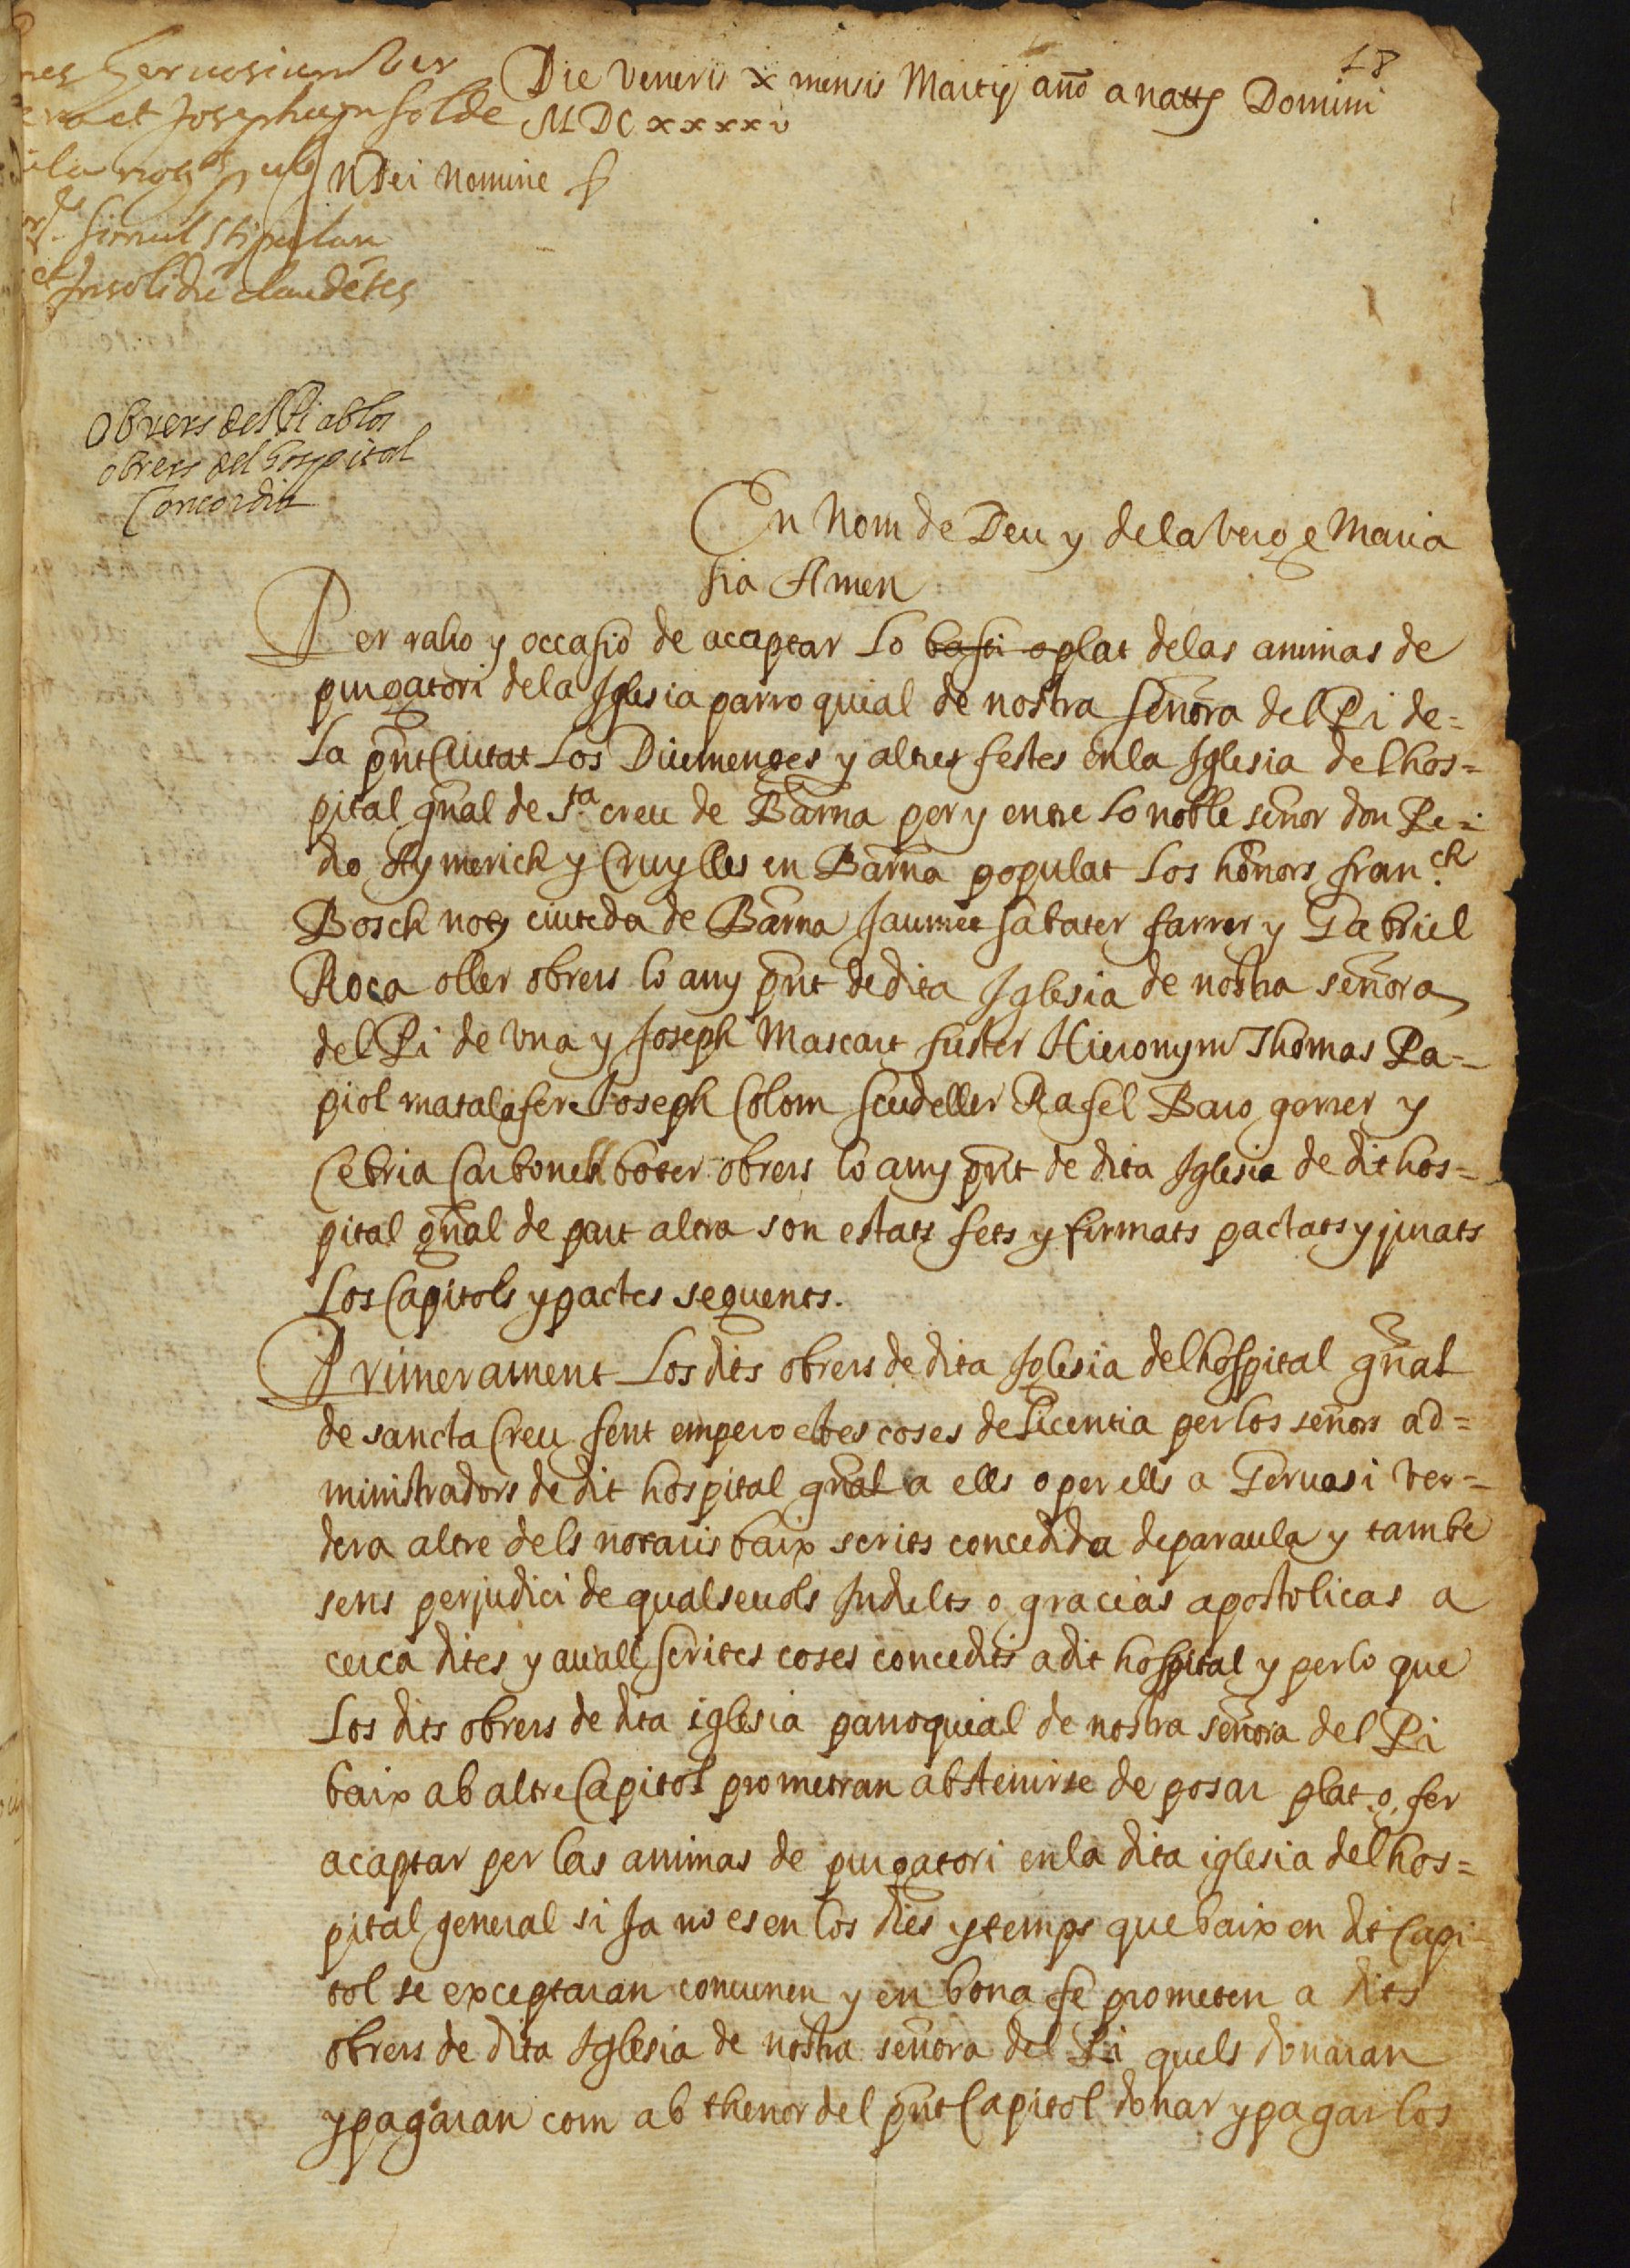 18
Die Veneris x mensis Martij anno a natte Domini
MDCxxxxv
In Dei Nomine
nes Geruosium Ver
et Josephum solde
la not pub
simul stipulan
et insolidu claudetes
Obrers del Pi ab los
obrers del hospital
Concordia
En Nom de Deu y dela Verge Maria
sia Amen
Per raho y occasio de acaptar lo basti o plat delas animas de
purgatori dela Iglesia parroquial de nostra señora del Pi de=
la pnt Ciutat los Diumenges y altres festes en la Iglesia del hos=
pital gnal de Sta creu de Barna per y entre lo noble señor don Pe=
dro Aymerich y Cruylles en Barna populat los honors franch
Bosch noty ciuteda de Barna Jaume sabater farrer y Gabriel
Roca oller obrers lo any pnt de dita Iglesia de nostra señora
del Pi de Vna y Joseph Mascart fuster Hieronym Thomas Pa=
piol matalafer Joseph Colom scudeller Rafel Baro gerrer y
Cebria Carbonell boter obrers lo any pnt de dita Iglesia de dit hos=
pital gnal de part altra son estats fets y firmats pactats y jurats
Los Capitols y pactes seguents.
Primerament Los dits obrers de dita Iglesia del hospital gnal
de sancta Creu fent empero ebes coses de licentia per los señors ad=
ministradors de dit hospital gnal a ells o per ells a Geruasi Ver=
dera altre dels notaris baix scrits concedida de paraula y tambe
sens perjudici de qualseuols Indults o gracias apostolicas a
cerca dites y auall scrites coses concedits a dit hospital y per lo que
Los dits obrers de dita iglesia parroquial de nostra señora del Pi
baix ab altre Capitol prometran abstenirse de posar plat o fer
acaptar per las animas de purgatori en la dita iglesia del hos=
pital general si ja no es en los dies y temps que baix en dit Capi
tol se exceptaran conuenen y en bona fe prometen a dits
obrers de dita Iglesia de nostra señora del Pi quels donaran
y pagaran com ab thenor del pnt Capitol donar y pagar los